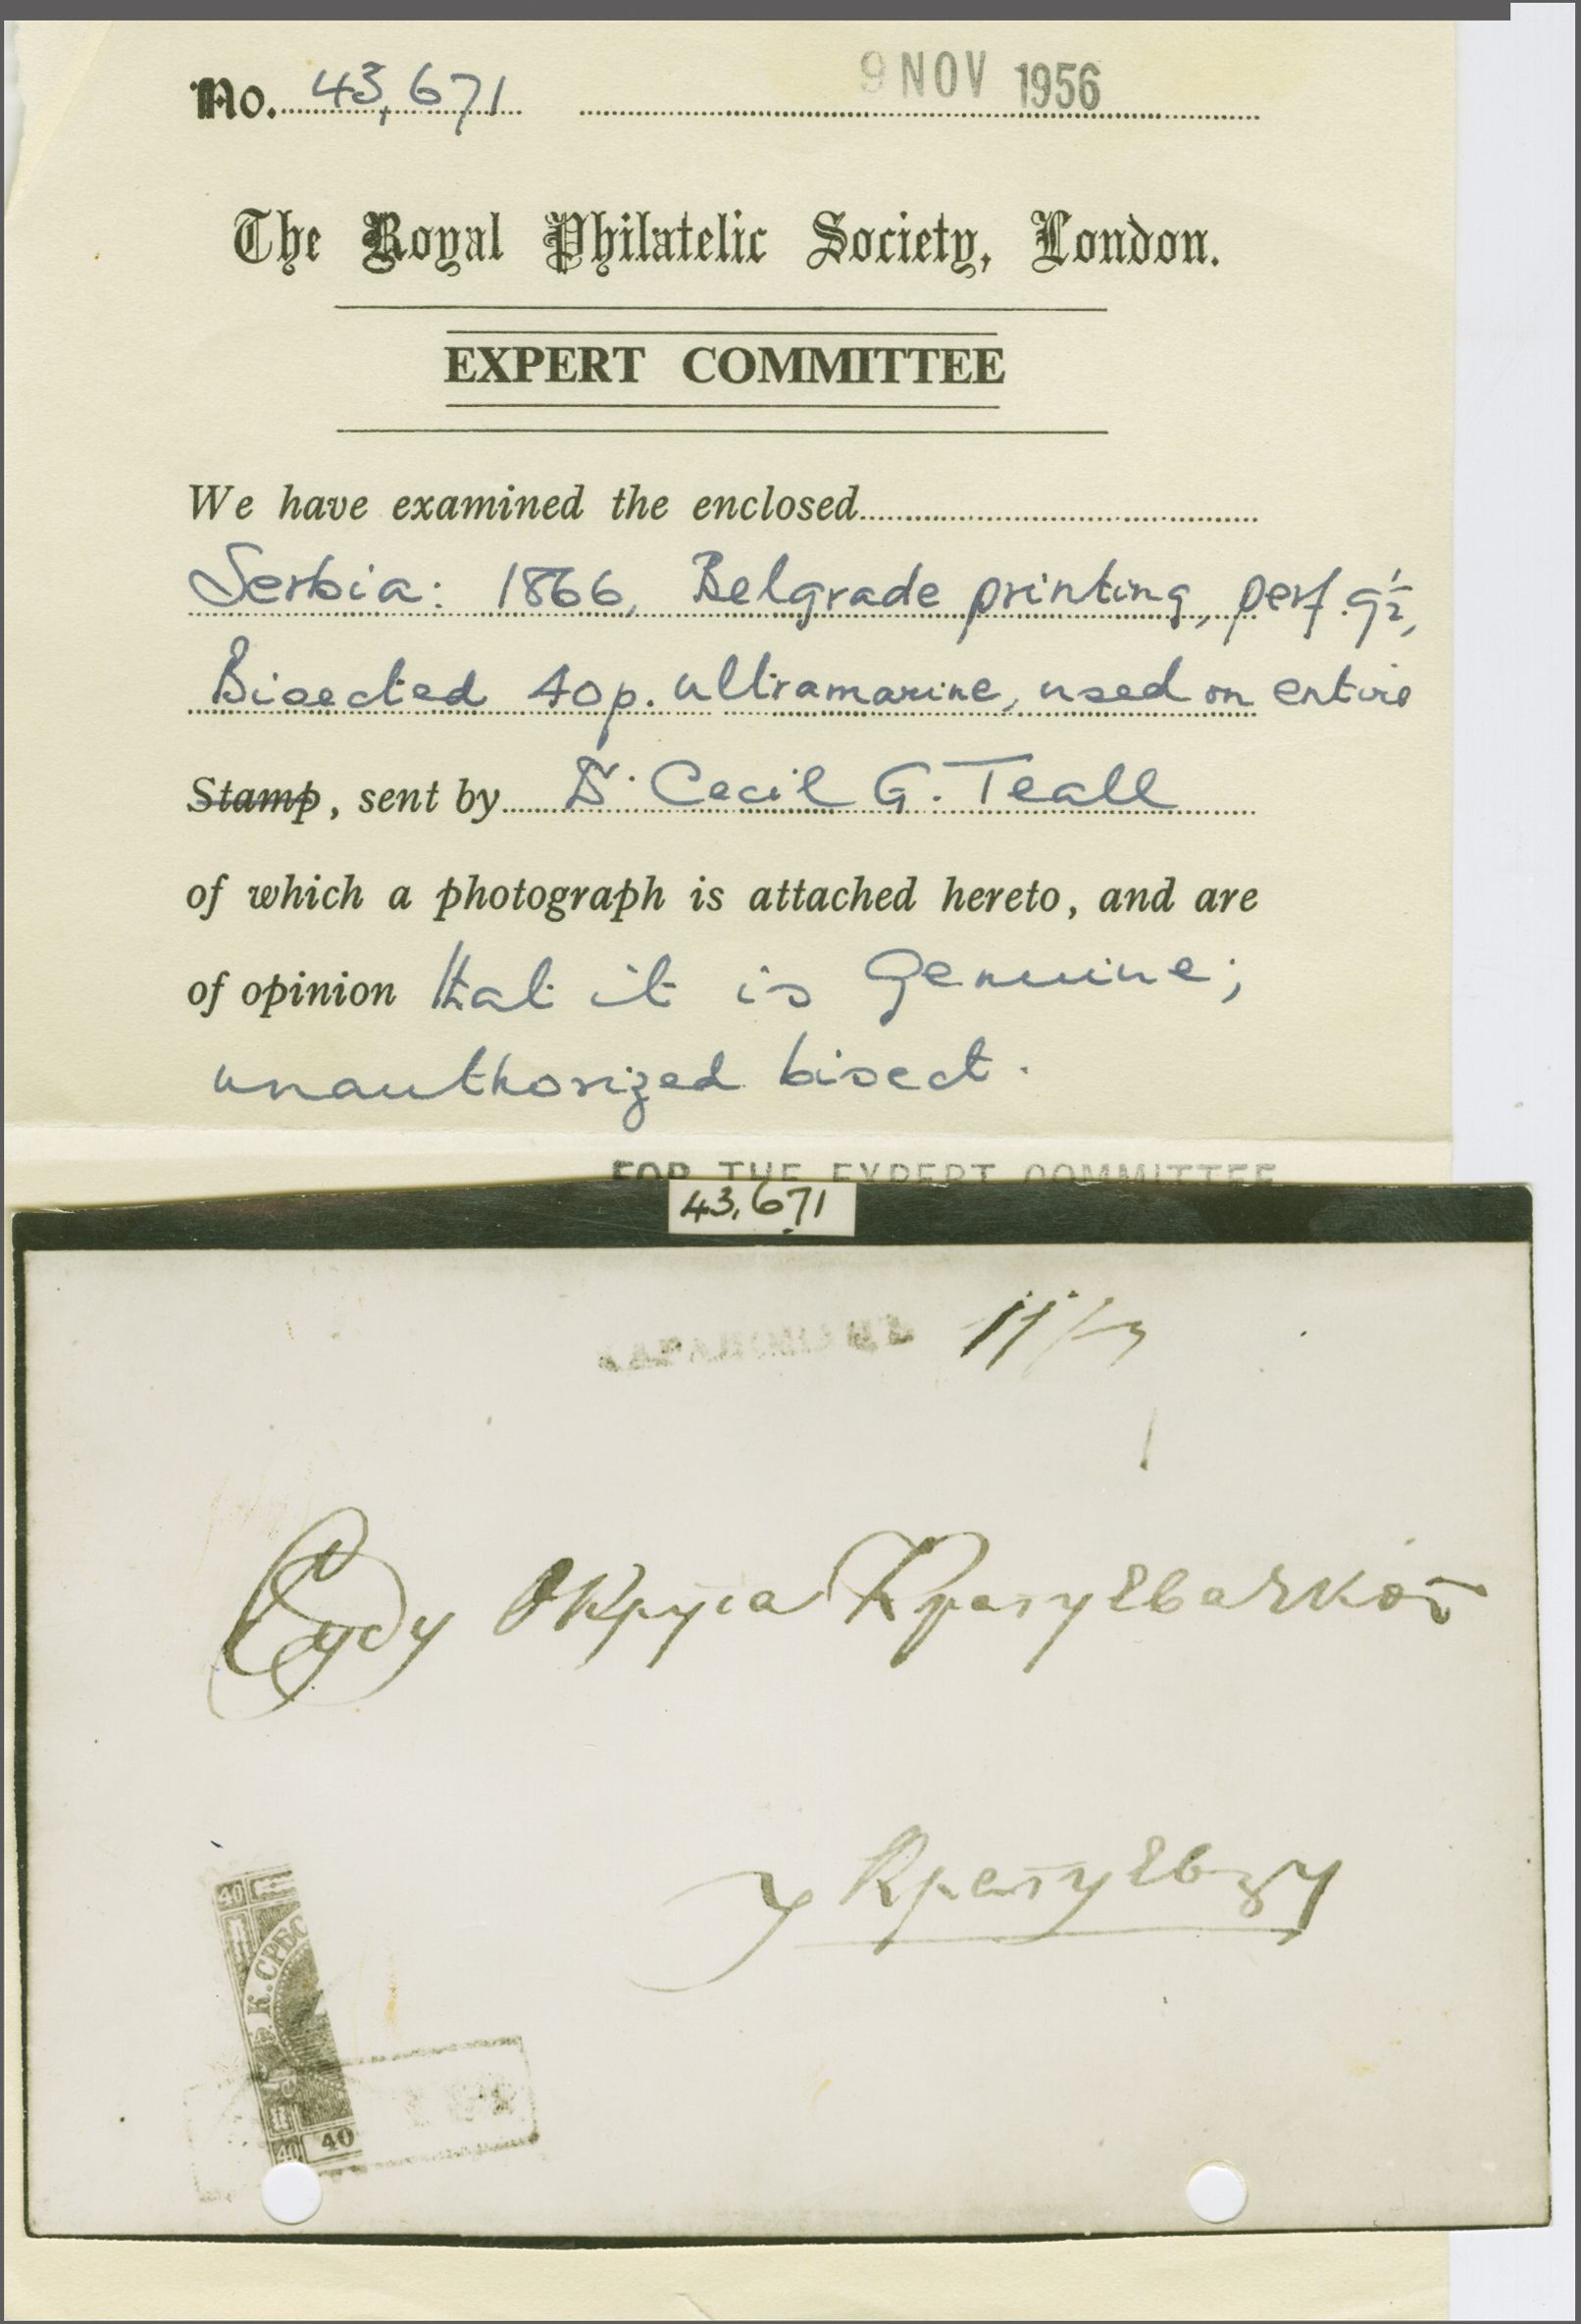 No. 43,671 9 NOV 1956
The Royal Philatelic Society, London.
EXPERT COMMITTEE
We have examined the enclosed
Serbia: 1866, Belgrade printing, perf. 9½,
Bisected 40p. ultramarine, used on entire
Stamp, sent by Dr. Cecil G. Teall
of which a photograph is attached hereto, and are
of opinion that it is Genuine;
unauthorized bisect.
FOR THE EXPERT COMMITTEE
43,671
Суду Округа Крагуевачког
у Крагуевцу
40
К. СРБС
40 40